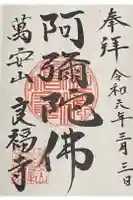 奉拝
令和元年三月三日
阿彌陀佛
萬安山
良福寺